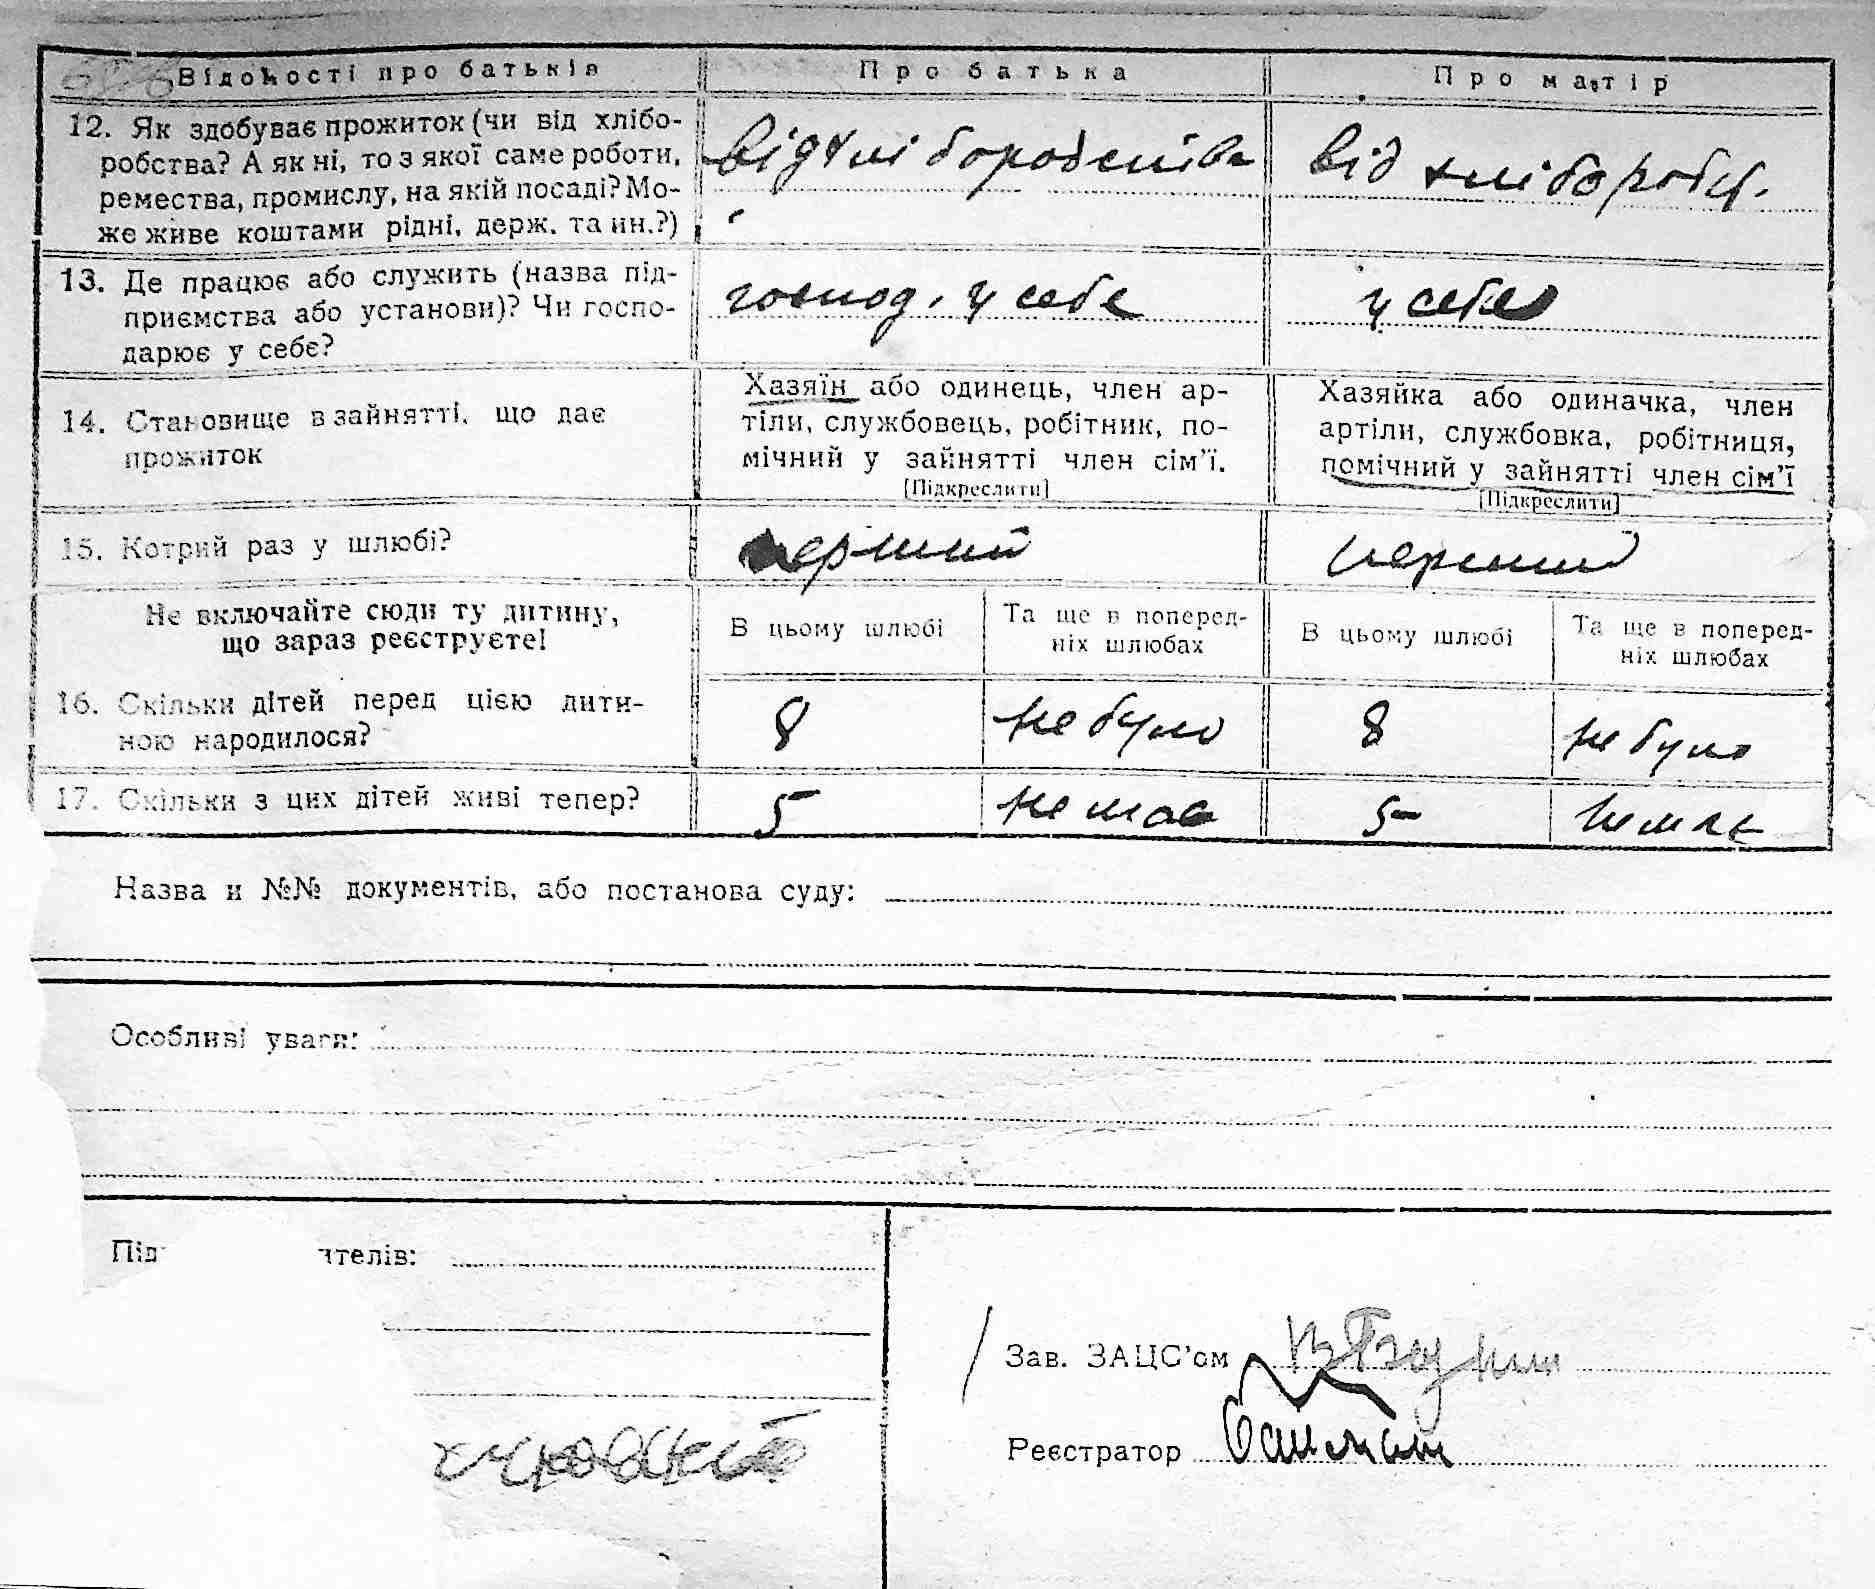 Відомості про батьків
Про батька
Про матір
12. Як здобуває прожиток (чи від хлібо-
робства? А як ні, то з якої саме роботи,
ремества, промислу, на якій посаді? Мо-
же живе коштами рідні, держ. та ин.?)
від хліборобства
від хлібороб.
13. Де працює або служить (назва під-
приємства або установи)? Чи госпо-
дарює у себе?
господ. у себе
у себе
14. Становище в зайнятті, що дає
прожиток
Хазяїн або одинець, член ар-
тіли, службовець, робітник, по-
мічний у зайнятті член сім'ї.
[Підкреслити]
Хазяйка або одиначка, член
артіли, службовка, робітниця,
помічний у зайнятті член сім'ї
[Підкреслити]
15. Котрий раз у шлюбі?
перший
перший
Не включайте сюди ту дитину,
що зараз реєструєте!
В цьому шлюбі
Та ще в поперед-
ніх шлюбах
В цьому шлюбі
Та ще в поперед-
ніх шлюбах
16. Скільки дітей перед цією дити-
ною народилося?
8
не було
8
не було
17. Скільки з цих дітей живі тепер?
5
немає
5
немає
Назва и №№ документів, або постанова суду:
Особливі уваги:
Під ителів:
Зав. ЗАЦС'ом
Реєстратор